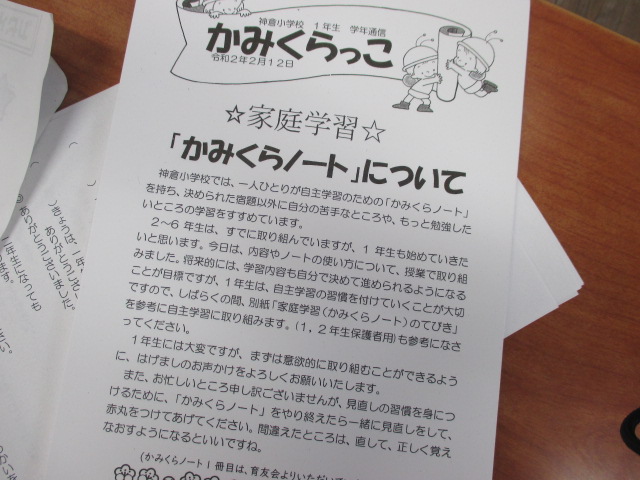 神倉小学校 1年生 学年通信
かみくらっこ
令和2年2月12日
☆家庭学習☆
「かみくらノート」について
神倉小学校では、一人ひとりが自主学習のための「かみくらノート」
を持ち、決められた宿題以外に自分の苦手なところや、もっと勉強した
いところの学習をすすめています。
2~6年生は、すでに取り組んでいますが、1年生も始めていきた
いと思います。今日は、内容やノートの使い方について、授業で取り組
みました。将来的には、学習内容も自分で決めて進められるようになる
ことが目標ですが、1年生は、自主学習の習慣を付けていくことが大切
ですので、しばらくの間、別紙「家庭学習(かみくらノート)のてびき」
を参考に自主学習に取り組みます。(1,2年生保護者用)も参考になさ
ってください。
1年生には大変ですが、まずは意欲的に取り組むことができるよう
に、はげましのお声かけをよろしくお願いいたします。
また、お忙しいところ申し訳ございませんが、見直しの習慣を身につ
けるために、「かみくらノート」をやり終えたら一緒に見直しをして、
赤丸をつけてあげてください。間違えたところは、直して、正しく覚え
なおすようになるといいですね。
(かみくらノート1冊目は、育友会よりいただいて